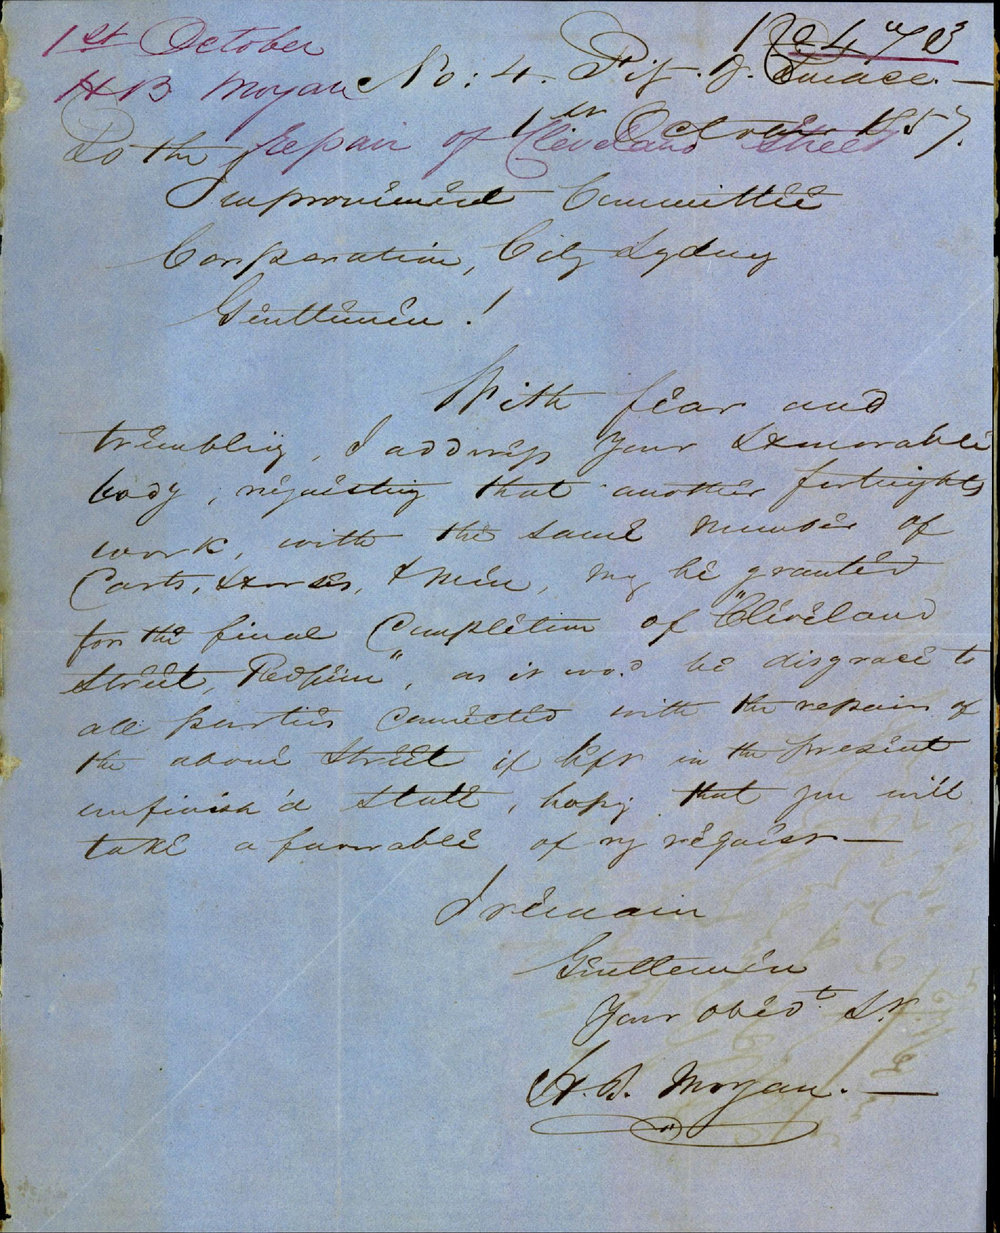 1st October
H B Morgan
Repair of Cleveland Street
No 4
No: 4.
1st October 1857.
To the
Improvement Committee
Corporation, City Sydney
Gentlemen!
With fear and
trembling, I address your Honorable
body, requesting that another fortnights
work, with the same number of
Carts, Horses, & men, my be granted
for the final Completion of "Cleveland
Street, Redfern", as it wod. be disgrace to
all parties connected with the repairs of
the above Street if left in the present
unfinish'd state, hoping that you will
take a favorable of my request —
I remain
Gentlemen
Your obedt. St.
H. B. Morgan. —